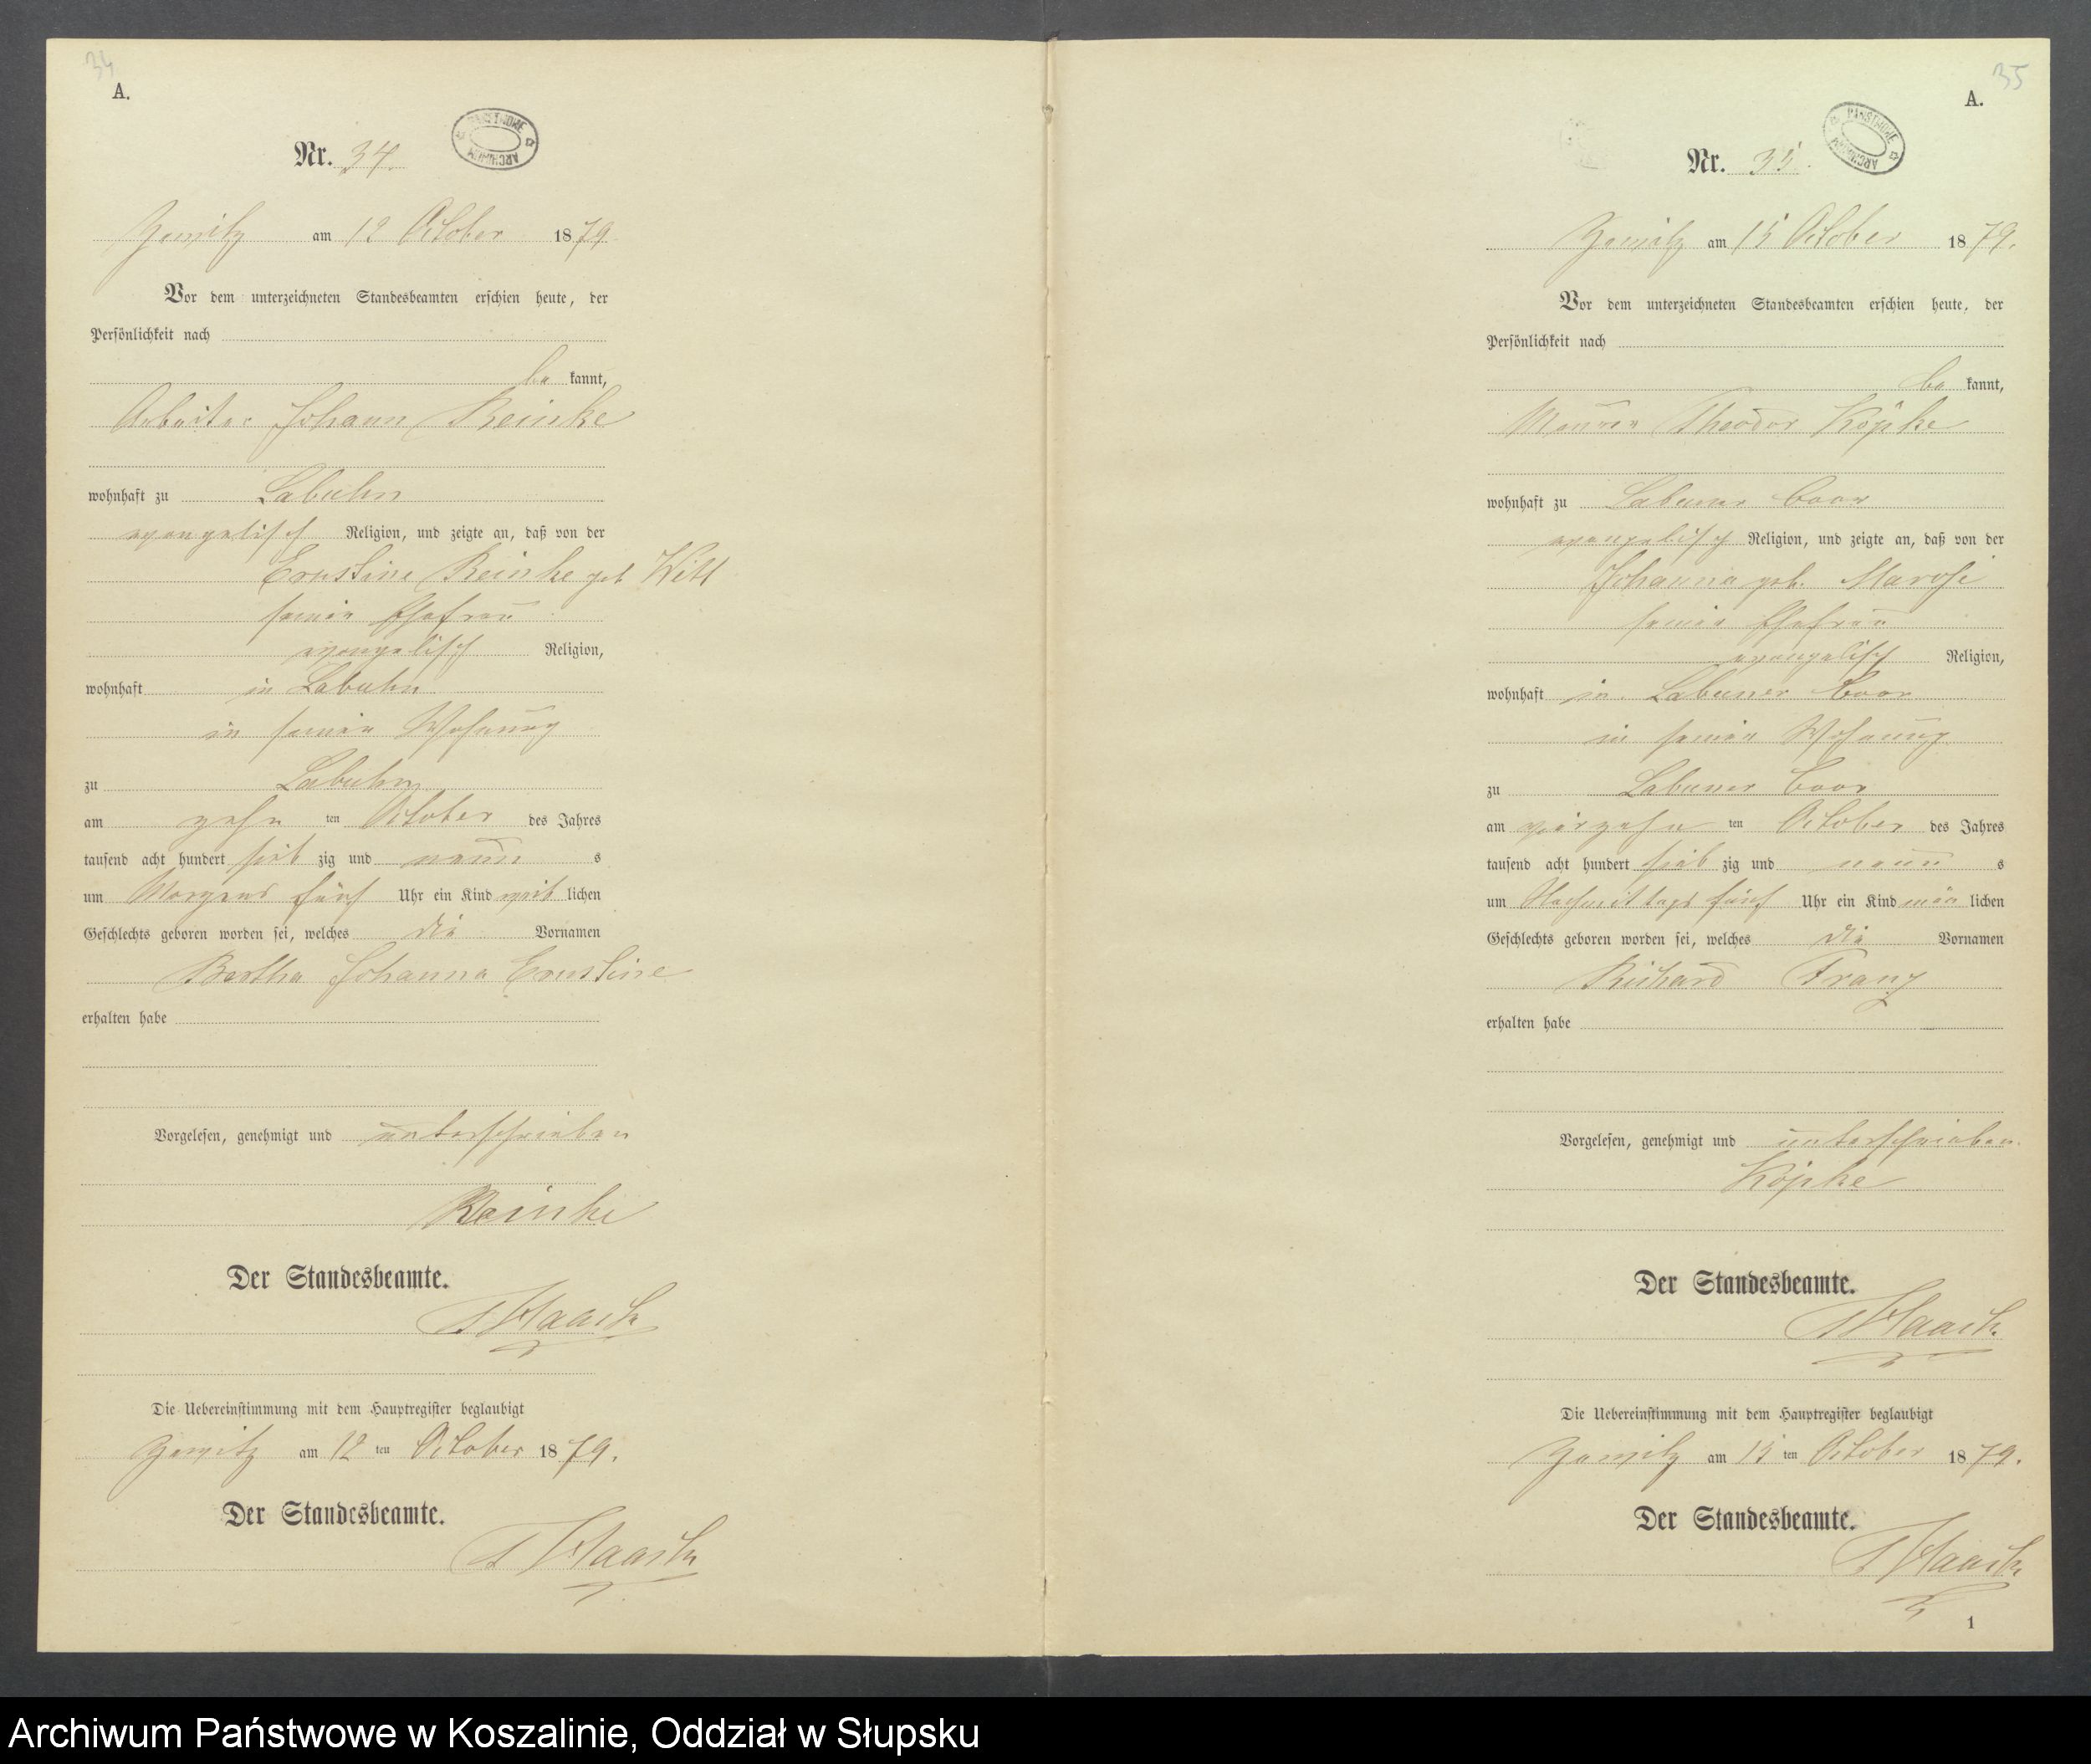 34
A.
PAŃSTWOWE
ARCHIWUM
Nr. 34.
Zewitz am 12 October 1879.
Vor dem unterzeichneten Standesbeamten erschien heute, der
Persönlichkeit nach
be kannt,
Arbeiter Johann Reinke
wohnhaft zu Labuhn
evangelisch Religion, und zeigte an, daß von der
Ernstine Reinke geb Witt
seiner Ehefrau
evangelisch Religion,
wohnhaft in Labuhn
in seiner Wohnung
zu Labuhn
am zehn ten October des Jahres
tausend acht hundert sieb zig und neun s
um Morgens fünf Uhr ein Kind weib lichen
Geschlechts geboren worden sei, welches die Vornamen
Bertha Johanna Ernstine
erhalten habe
Vorgelesen, genehmigt und unterschrieben
Reinke
Der Standesbeamte.
Haack
Die Uebereinstimmung mit dem Hauptregister beglaubigt
Zewitz am 12 ten October 1879.
Der Standesbeamte.
Haack
35
A.
PAŃSTWOWE
ARCHIWUM
Nr. 35.
Zewitz am 15 October 1879.
Vor dem unterzeichneten Standesbeamten erschien heute, der
Persönlichkeit nach
be kannt,
Maurer Theodor Köpke
wohnhaft zu Labuner
evangelisch Religion, und zeigte an, daß von der
Johanna geb.
seiner Ehefrau
evangelisch Religion,
wohnhaft in Labuner
in seiner Wohnung
zu Labuner
am vierzehn ten October des Jahres
tausend acht hundert sieb zig und neun s
um Nachmittags fünf Uhr ein Kind män lichen
Geschlechts geboren worden sei, welches die Vornamen
Richard Franz
erhalten habe
Vorgelesen, genehmigt und unterschrieben.
Köpke
Der Standesbeamte.
Haack
Die Uebereinstimmung mit dem Hauptregister beglaubigt
Zewitz am 15 ten October 1879.
Der Standesbeamte.
Haack
1
Archiwum Państwowe w Koszalinie, Oddział w Słupsku